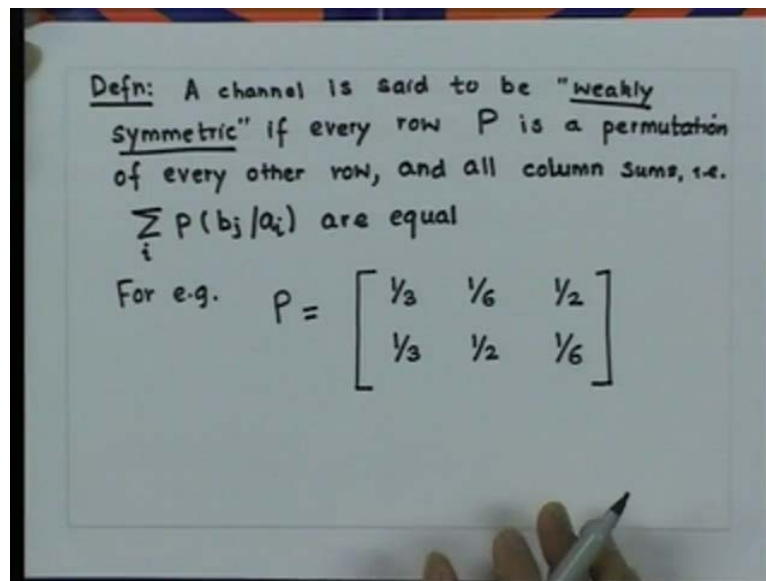 Defn: A channel is said to be "weakly
symmetric" if every row P is a permutation
of every other row, and all column sums, i.e.
∑ᵢ P(bⱼ/aᵢ) are equal
For e.g. P = [ 1/3 1/6 1/2
1/3 1/2 1/6 ]